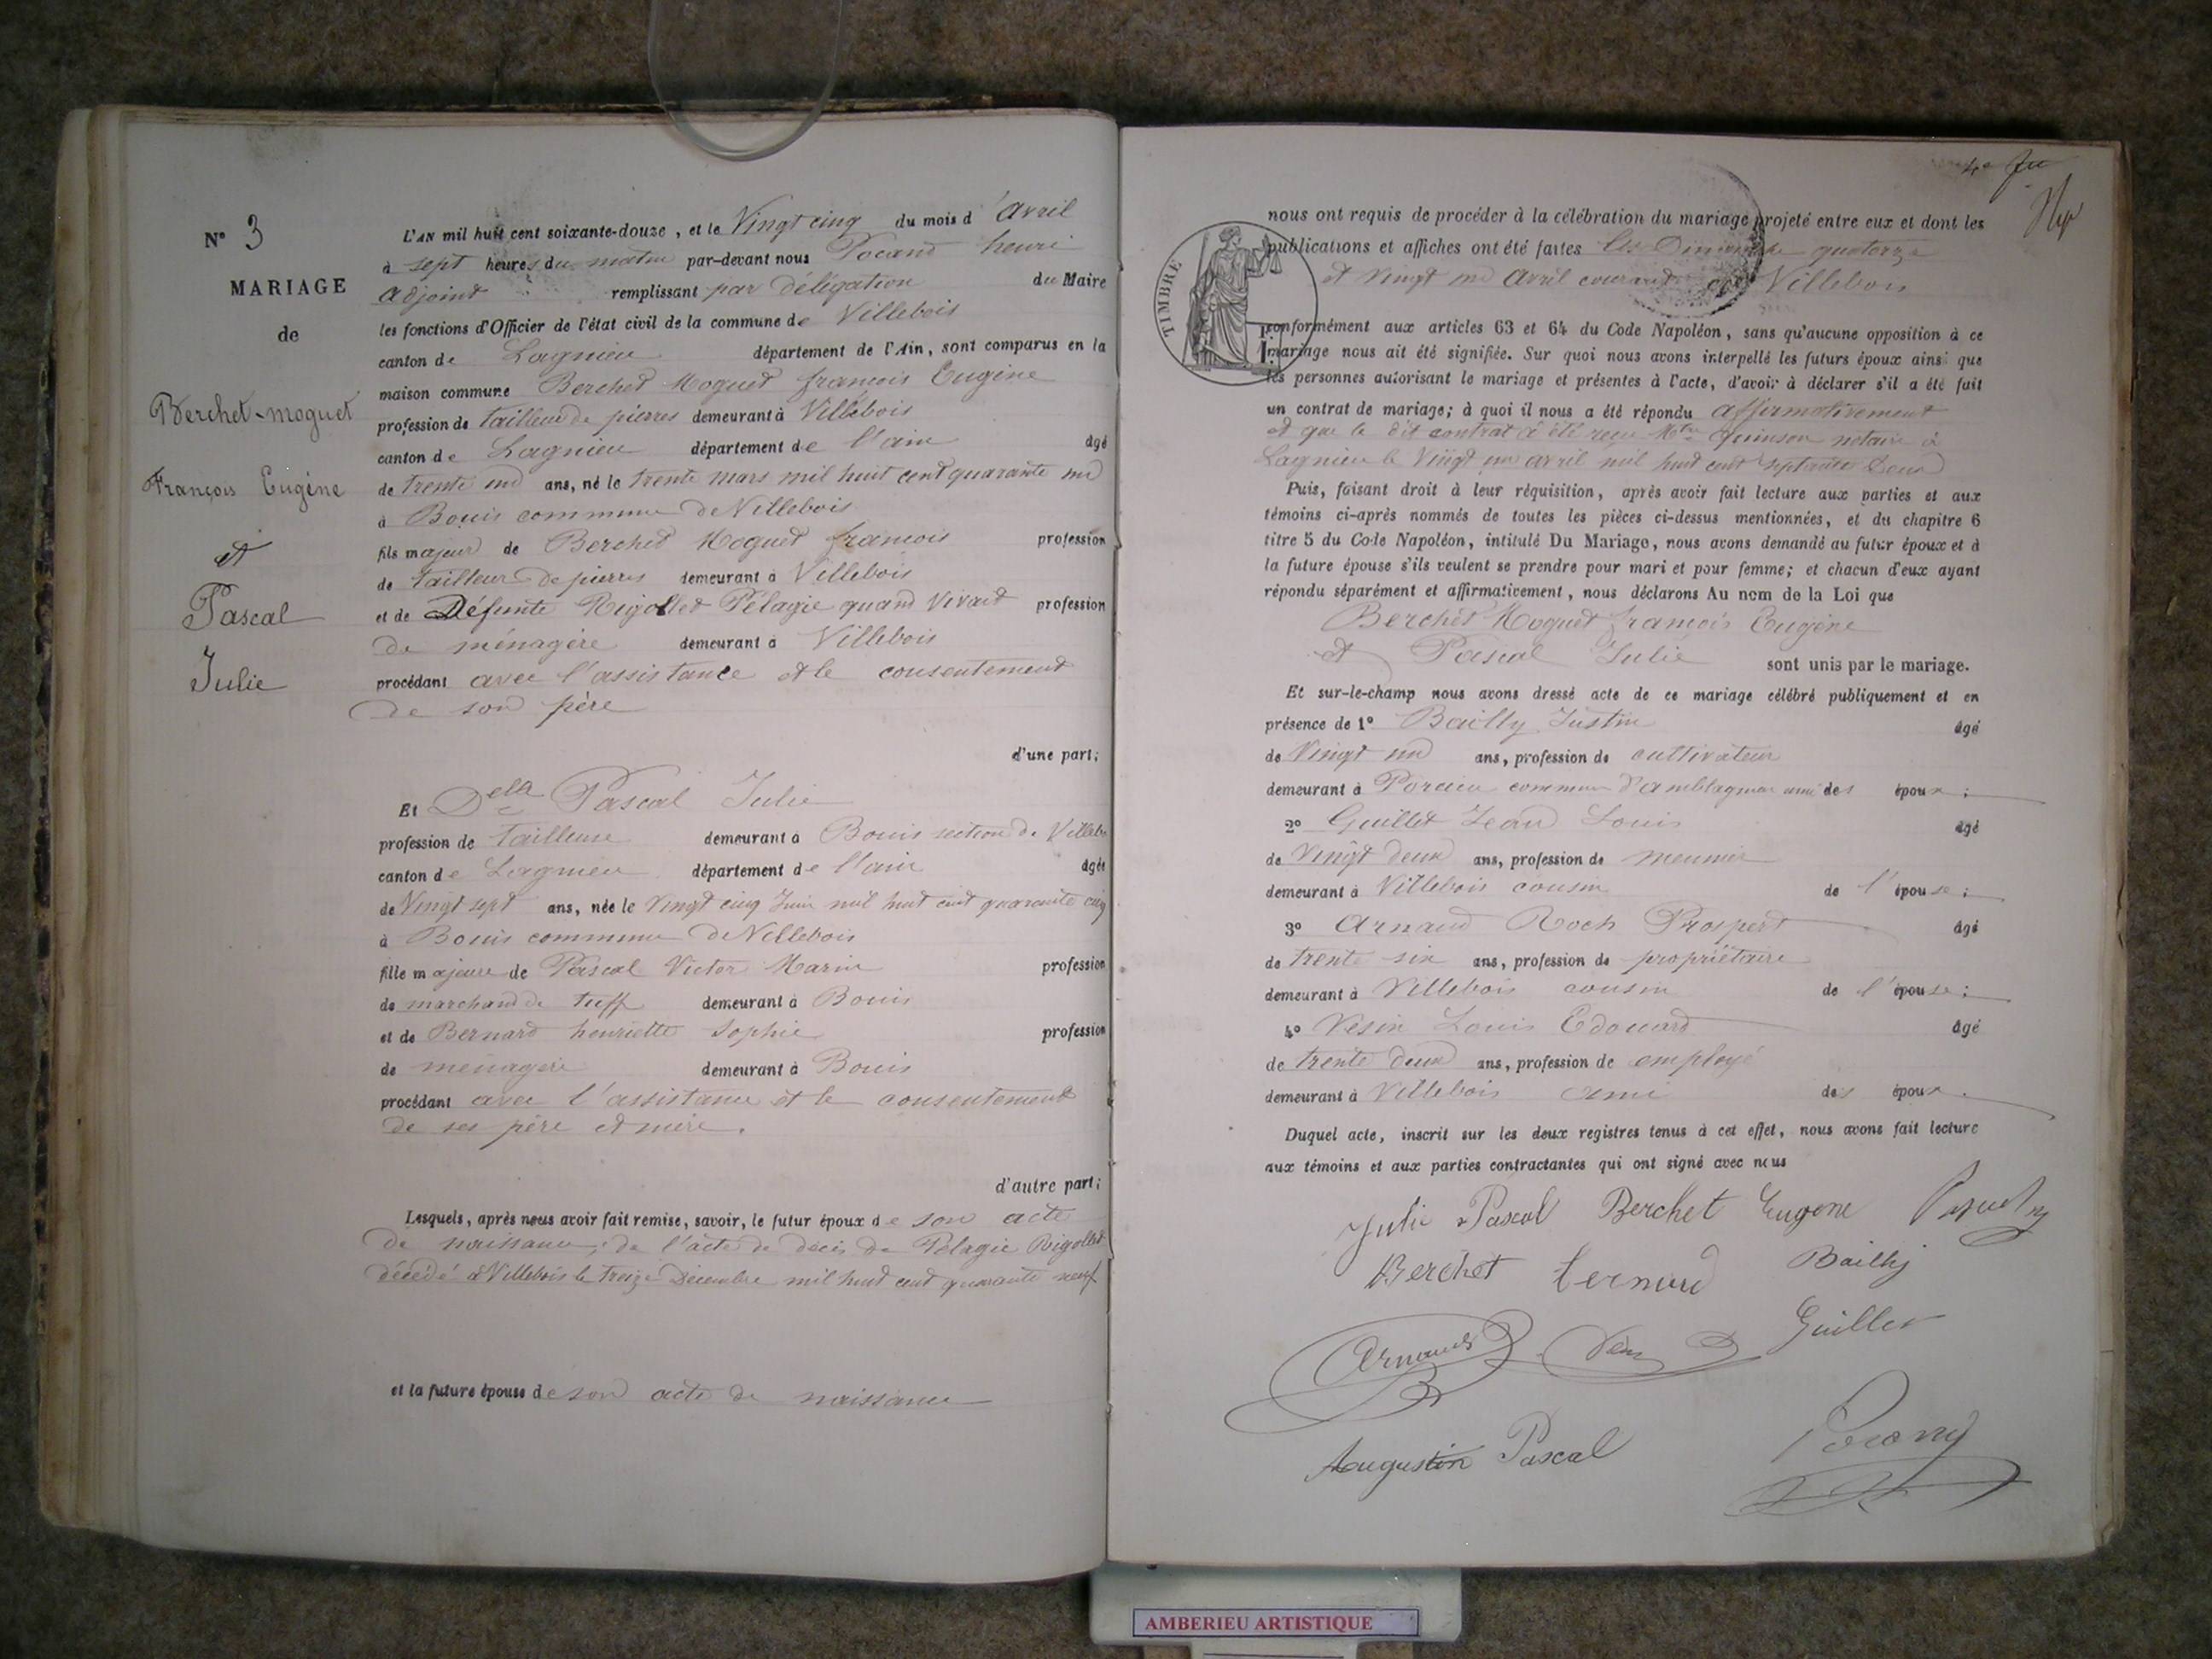 N° 3
MARIAGE
de
Berchet-moguet
François Eugène
et
Pascal
Julie
L'AN mil huit cent soixante-douze, et le Vingt cinq du mois d'Avril
à sept heures du matin par-devant nous Pocand henri
adjoint remplissant par délégation du Maire
les fonctions d'Officier de l'état civil de la commune de Villebois
canton de Lagnieu département de l'Ain, sont comparus en la
maison commune Berchet Moguet françois Eugène
profession de tailleur de pierres demeurant à Villebois
canton de Lagnieu département de l'ain âgé
de trente un ans, né le trente mars mil huit cent quarante un
à Bouis commune de Villebois
fils majeur de Berchet Moguet françois profession
de tailleur de pierres demeurant à Villebois
et de Défunte Rigollet Pélagie quand Vivait profession
de ménagère demeurant à Villebois
procédant avec l'assistance et le consentement
de son père
d'une part;
Et Delle Pascal Julie
profession de tailleuse demeurant à Bouis section de Villebo
canton de Lagnieu département de l'ain âgée
de Vingt sept ans, née le Vingt cinq Juin mil huit cent quarante cinq
à Bouis commune de Villebois
fille majeure de Pascal Victor Marin profession
de marchand de tuff demeurant à Bouis
et de Bernard henriette Sophie profession
de ménagère demeurant à Bouis
procédant avec l'assistance et le consentement
de ses père et mère.
d'autre part;
Lesquels, après nous avoir fait remise, savoir, le futur époux de son acte
de naissance, de l'acte de décès de Pélagie Rigollet
décédé à Villebois le treize Décembre mil huit cent quarante neuf
et la future épouse de son acte de naissance
4e
TIMBRE
nous ont requis de procéder à la célébration du mariage projeté entre eux et dont les
publications et affiches ont été faites les Dimanche quatorze
et vingt un Avril courant Villebois
conformément aux articles 63 et 64 du Code Napoléon, sans qu'aucune opposition à ce
mariage nous ait été signifiée. Sur quoi nous avons interpellé les futurs époux ainsi que
les personnes autorisant le mariage et présentes à l'acte, d'avoir à déclarer s'il a été fait
un contrat de mariage; à quoi il nous a été répondu affirmativement
et que le dit contrat à été reçu Mtre Quinson notaire à
Lagnieu le Vingt un avril mil huit cent septante deux
Puis, faisant droit à leur réquisition, après avoir fait lecture aux parties et aux
témoins ci-après nommés de toutes les pièces ci-dessus mentionnées, et du chapitre 6
titre 5 du Code Napoléon, intitulé Du Mariage, nous avons demandé au futur époux et à
la future épouse s'ils veulent se prendre pour mari et pour femme; et chacun d'eux ayant
répondu séparément et affirmativement, nous déclarons Au nom de la Loi que
Berchet Moguet françois Eugène
et Pascal Julie sont unis par le mariage.
Et sur-le-champ nous avons dressé acte de ce mariage célébré publiquement et en
présence de 1° Bailly Justin âgé
de Vingt un ans, profession de cultivateur
demeurant à Porcieu commune d'amblagnieu ami des époux;
2° Guillet Jean Louis âgé
de Vingt deux ans, profession de meunier
demeurant à Villebois cousin de l'épouse;
3° Arnaud Roch Prospert âgé
de trente six ans, profession de propriétaire
demeurant à Villebois cousin de l'épouse;
4° Vesin Louis Edouard âgé
de trente deux ans, profession de employé
demeurant à Villebois ami des époux.
Duquel acte, inscrit sur les deux registres tenus à cet effet, nous avons fait lecture
aux témoins et aux parties contractantes qui ont signé avec nous
Julie Pascal Berchet Eugene
Berchet Bernard Bailly
Arnaud Guillet
Augustin Pascal
AMBERIEU ARTISTIQUE